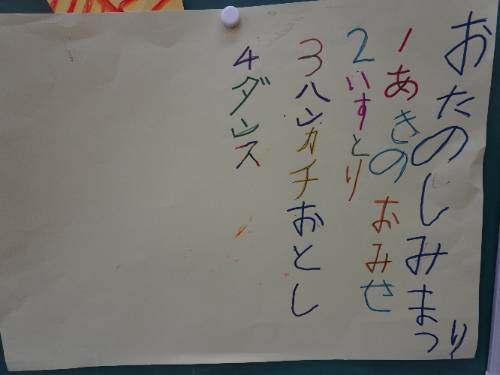 おたのしみまつり
1あきのおみせ
2いすとり
3ハンカチおとし
4ダンス